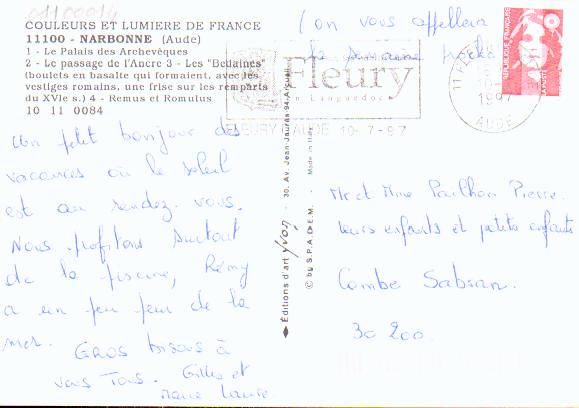 01100014
COULEURS ET LUMIERE DE FRANCE
11100 - NARBONNE (Aude)
1 - Le Palais des Archevêques
2 - Le passage de l'Ancre 3 - Les "Bellaines"
(boulets en basalte qui formaient, avec les
vestiges romains, une frise sur les remparts
du XVIe s.) 4 - Remus et Romulus
10 11 0084
Un petit bonjour des
vacances où le soleil
est au rendez-vous.
Nous profitons surtout
de la piscine, Rémy
a un peu peur de la
mer. Gros bisous à
vous Tous. Gilles et
Marie Laure
(on vous appellera
la semaine
Fleury
en Languedoc
FLEURY D'AUDE 10-7-97
1997
AUDE
REPUBLIQUE FRANÇAISE
LA POSTE
Editions d'art Yvon, 30, Av. Jean-Jaurès 94-Arcueil
© by S.P.A.D.E.M. Made in
Mr et Mme Pailhon Pierre
leurs enfants et petits enfants
Combe Sabran.
30 200.